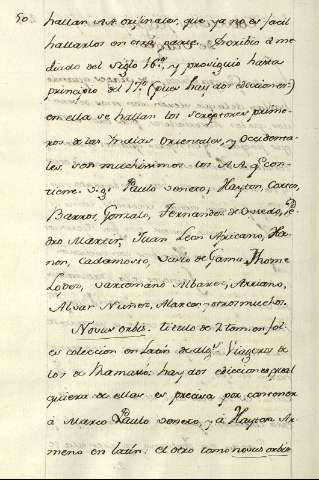 50
hallan AA originales, que ya no es facil
hallarlos en otra parte. Escribió á me
diado del Siglo 16º y prosiguió hasta
principio del 17º (pues hay dos ediciones)
en ella se hallan los screptores prime
ros de las Indias orientales, y Occidenta-
les son muchisimos los AA. q. con-
tiene. v.g. Paulo veneto, Hayton, Cortes,
Barros, Gonzalo, Fernandez de Oviedo, Pe
dro Martir, Juan Leon Africano, Ha-
non, Cadamosto, Vasco de Gama, Thome
Lopez, Albarez, Arriano,
Alvar Nuñez, Marco, y otros muchos.
Novus orbis. titulo de 1 tom. en fol
es coleccion en latin de alg.s Viageros de
los de Ramusio: hay dos ediciones qual
quiera de ellas es precisa por contener
á Marco Paulo veneto, y á Hayton Ar
meno en latin. el otro tomo novus orbis